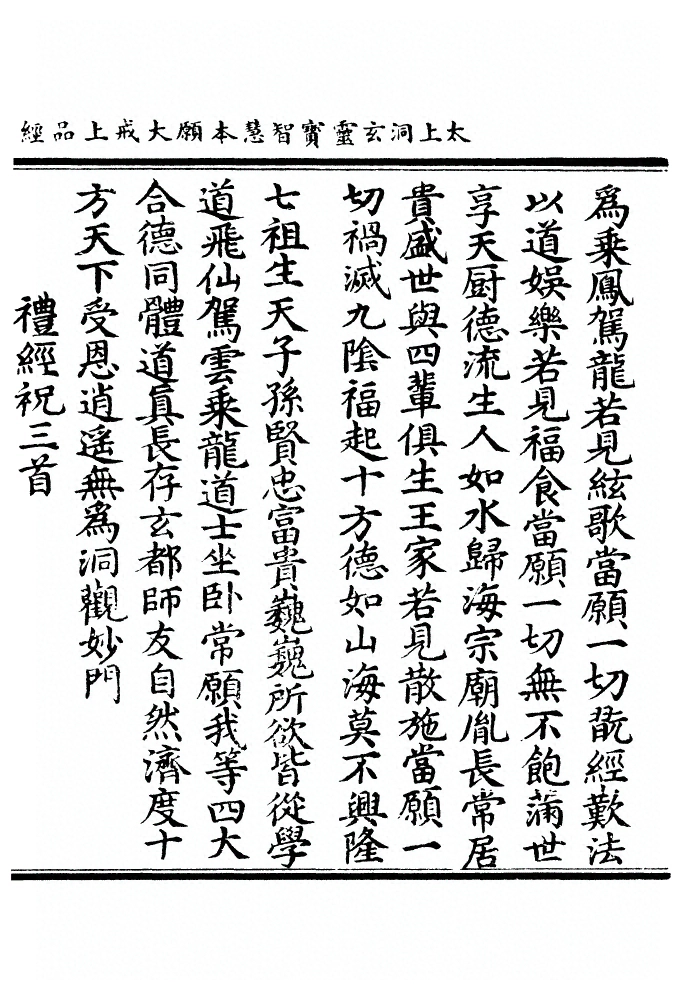 太上洞玄靈寳智慧本願大戒上品經
爲乘鳳駕龍若見絃歌當願一切翫經歎法
以道娛樂若見福食當願一切無不飽滿世
享天厨德流生人如水歸海宗廟胤長常居
貴盛世與四輩俱生王家若見散施當願一
切禍滅九陰福起十方德如山海莫不興隆
七祖生天子孫賢忠富貴巍巍所欲皆從學
道飛仙駕雲乘龍道士坐卧常願我等四大
合德同體道眞長存玄都師友自然濟度十
方天下受恩逍遥無爲洞觀妙門
禮經祝三首